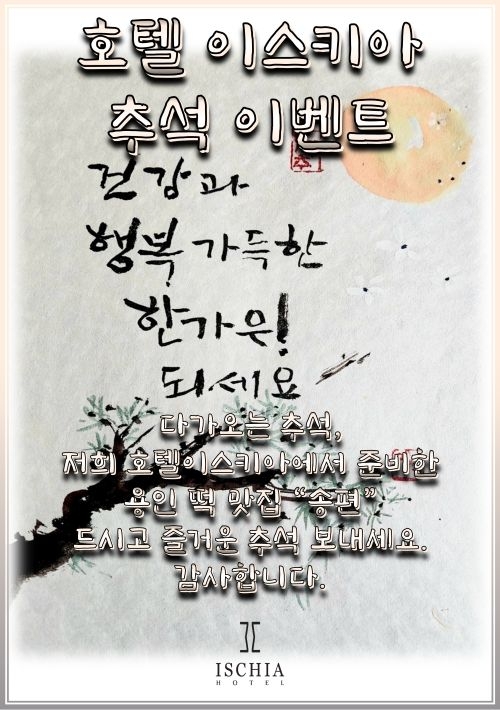 호텔 이스키아
추석 이벤트
건강과
행복 가득한
한가위!
되세요
다가오는 추석,
저희 호텔이스키아에서 준비한
용인 떡 맛집 “송편”
드시고 즐거운 추석 보내세요.
감사합니다.
ISCHIA
HOTEL